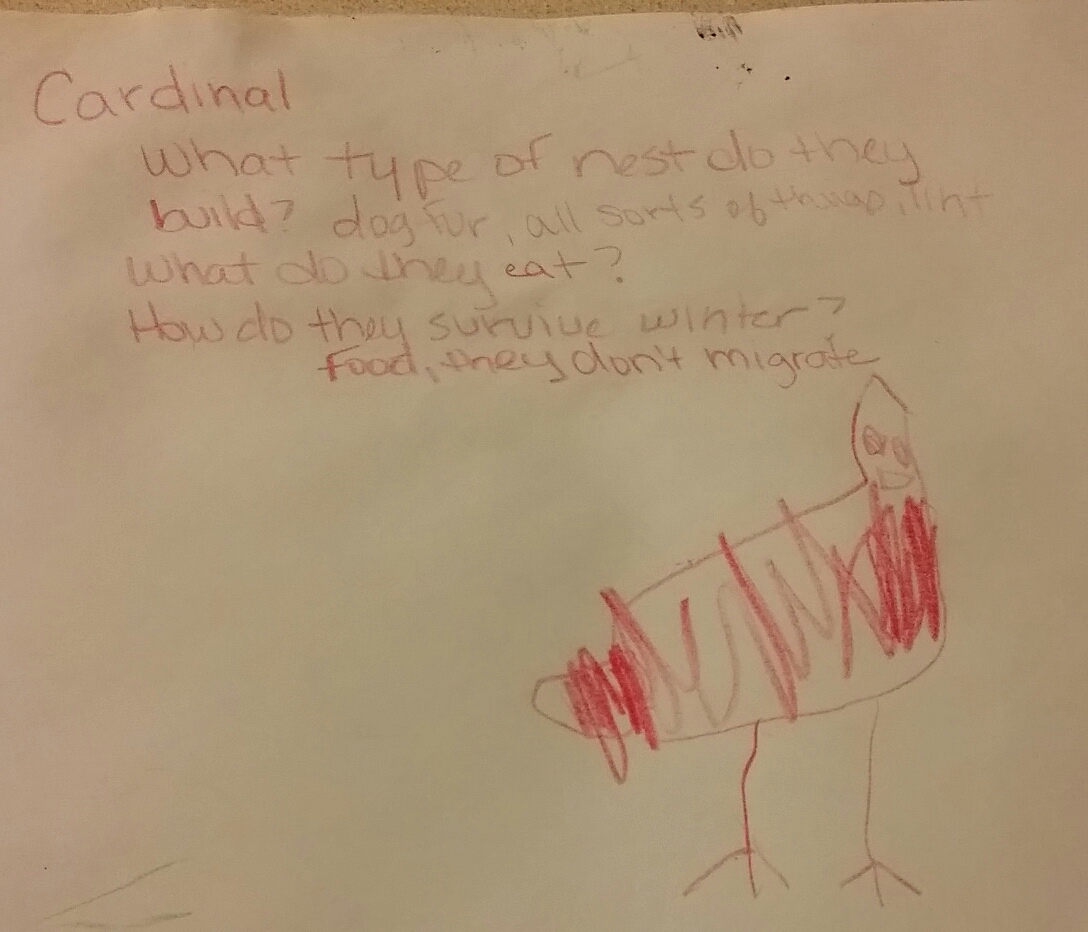 Cardinal
What type of nest do they
build? dog fur, all sorts of things, lint
What do they eat?
How do they survive winter?
Food, they don't migrate